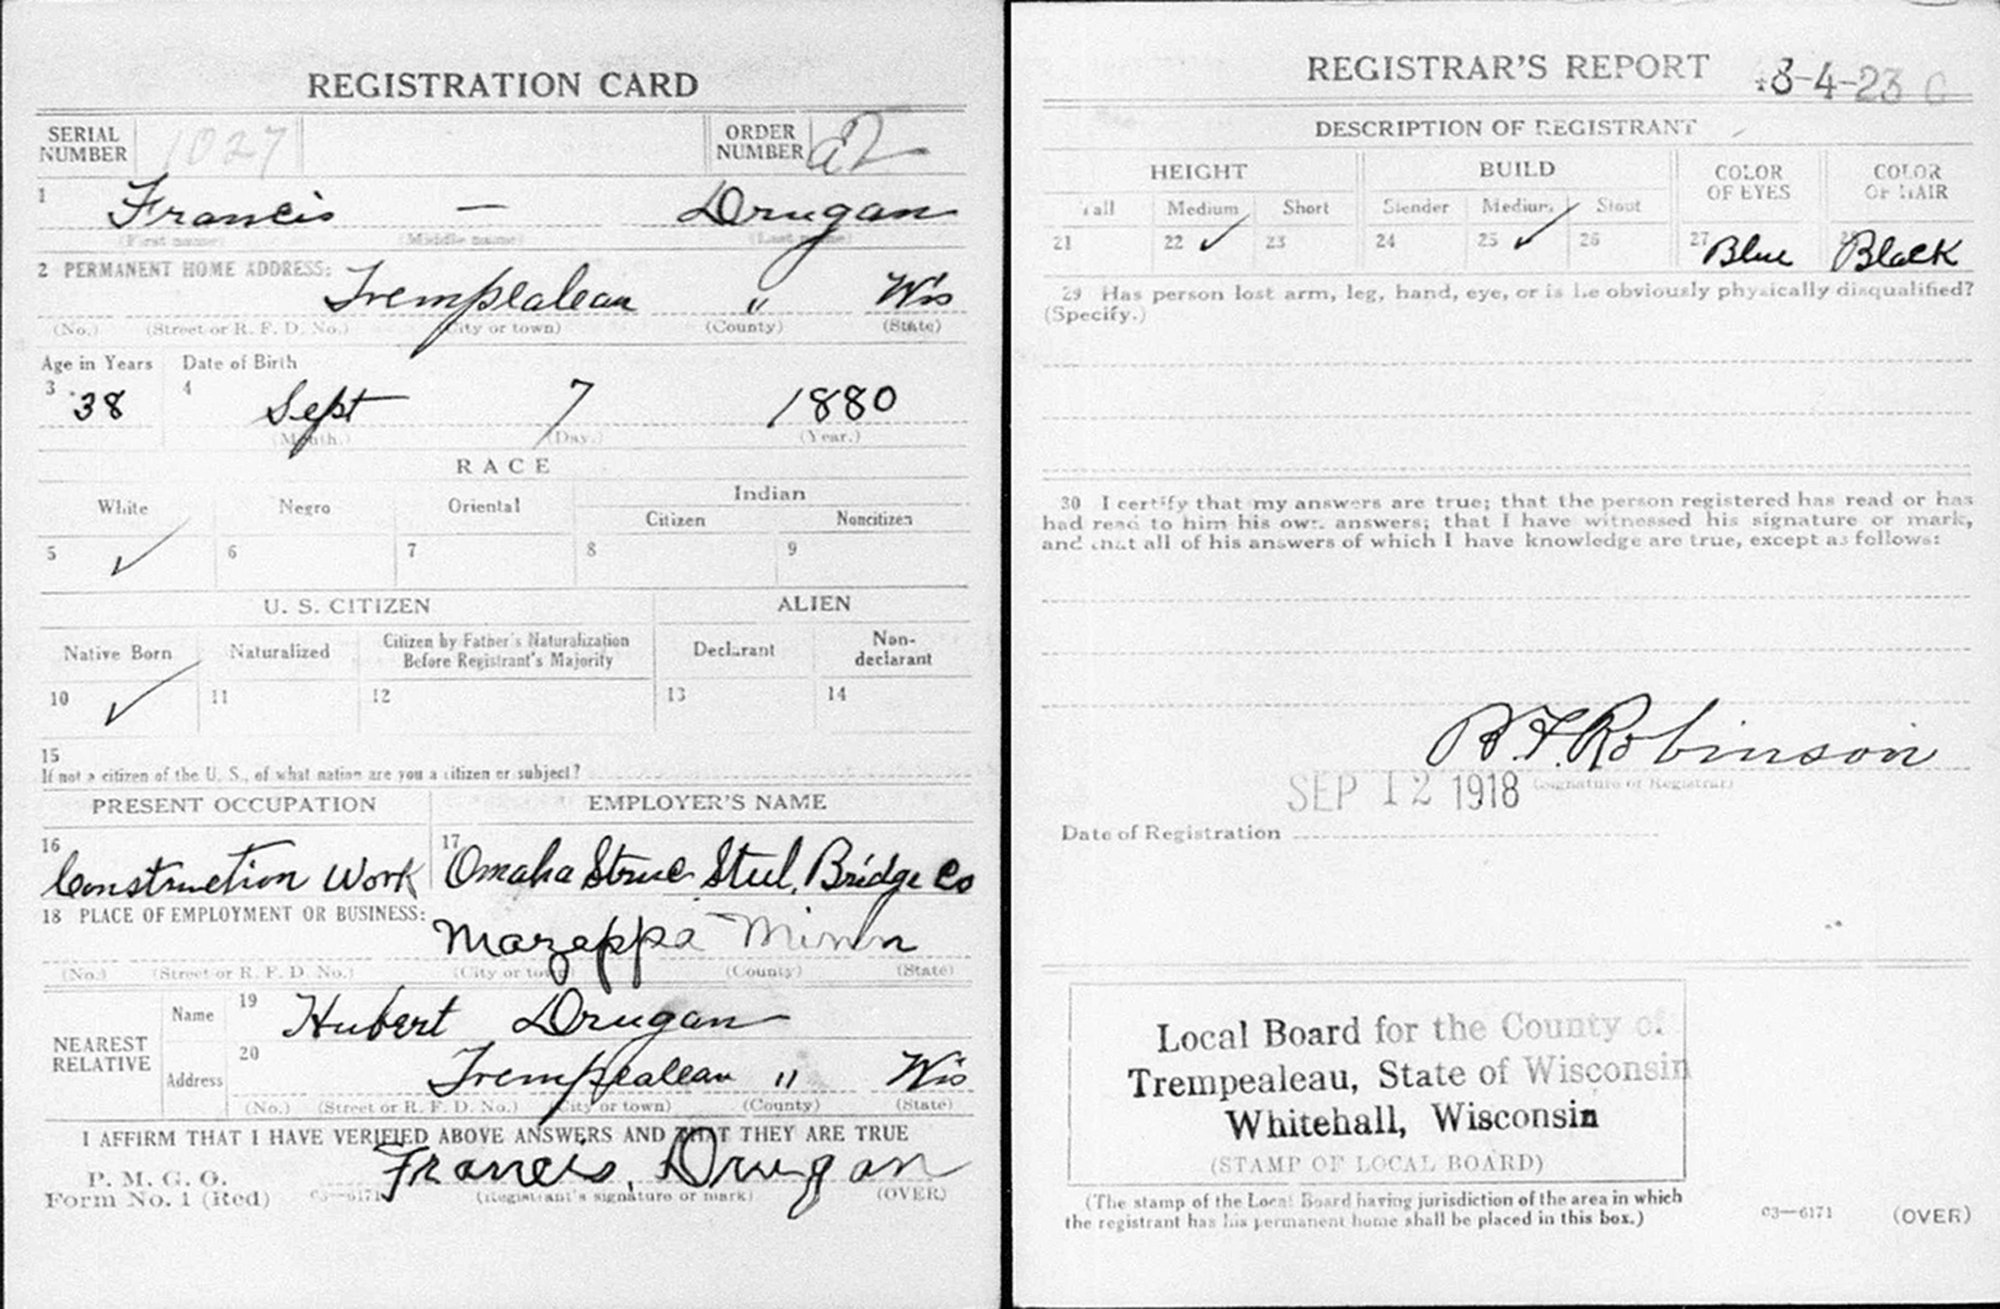 REGISTRATION CARD
SERIAL NUMBER 1027 ORDER NUMBER
1 Francis — Drugan
(First name) (Middle name) (Last name)
2 PERMANENT HOME ADDRESS:
Trempealeau " Wis
(No.) (Street or R. F. D. No.) (City or town) (County) (State)
Age in Years Date of Birth
3 38 4 Sept 7 1880
(Month.) (Day.) (Year.)
RACE
White Negro Oriental Indian
Citizen Noncitizen
5 ✓ 6 7 8 9
U. S. CITIZEN ALIEN
Native Born Naturalized Citizen by Father's Naturalization Before Registrant's Majority Declarant Non-declarant
10 ✓ 11 12 13 14
15
If not a citizen of the U. S., of what nation are you a citizen or subject?
PRESENT OCCUPATION EMPLOYER'S NAME
16 Construction Work 17 Omaha Struc Steel Bridge Co
18 PLACE OF EMPLOYMENT OR BUSINESS:
Mazeppa Minn
(No.) (Street or R. F. D. No.) (City or town) (County) (State)
NEAREST RELATIVE
Name 19 Hubert Drugan
Address 20 Trempealeau " Wis
(No.) (Street or R. F. D. No.) (City or town) (County) (State)
I AFFIRM THAT I HAVE VERIFIED ABOVE ANSWERS AND THAT THEY ARE TRUE
P. M. G. O.
Form No. 1 (Red) 03—6171 Francis, Drugan
(Registrant's signature or mark) (OVER)
REGISTRAR'S REPORT
DESCRIPTION OF REGISTRANT
HEIGHT BUILD COLOR OF EYES COLOR OF HAIR
Tall Medium Short Slender Medium Stout
21 22 ✓ 23 24 25 ✓ 26 27 Blue 28 Black
29 Has person lost arm, leg, hand, eye, or is he obviously physically disqualified?
(Specify.)
30 I certify that my answers are true; that the person registered has read or has
had read to him his own answers; that I have witnessed his signature or mark,
and that all of his answers of which I have knowledge are true, except as follows:
Robinson
(Signature of Registrar)
SEP 12 1918
Date of Registration
Local Board for the County of
Trempealeau, State of Wisconsin
Whitehall, Wisconsin
(STAMP OF LOCAL BOARD)
(The stamp of the Local Board having jurisdiction of the area in which
the registrant has his permanent home shall be placed in this box.)
03—6171 (OVER)